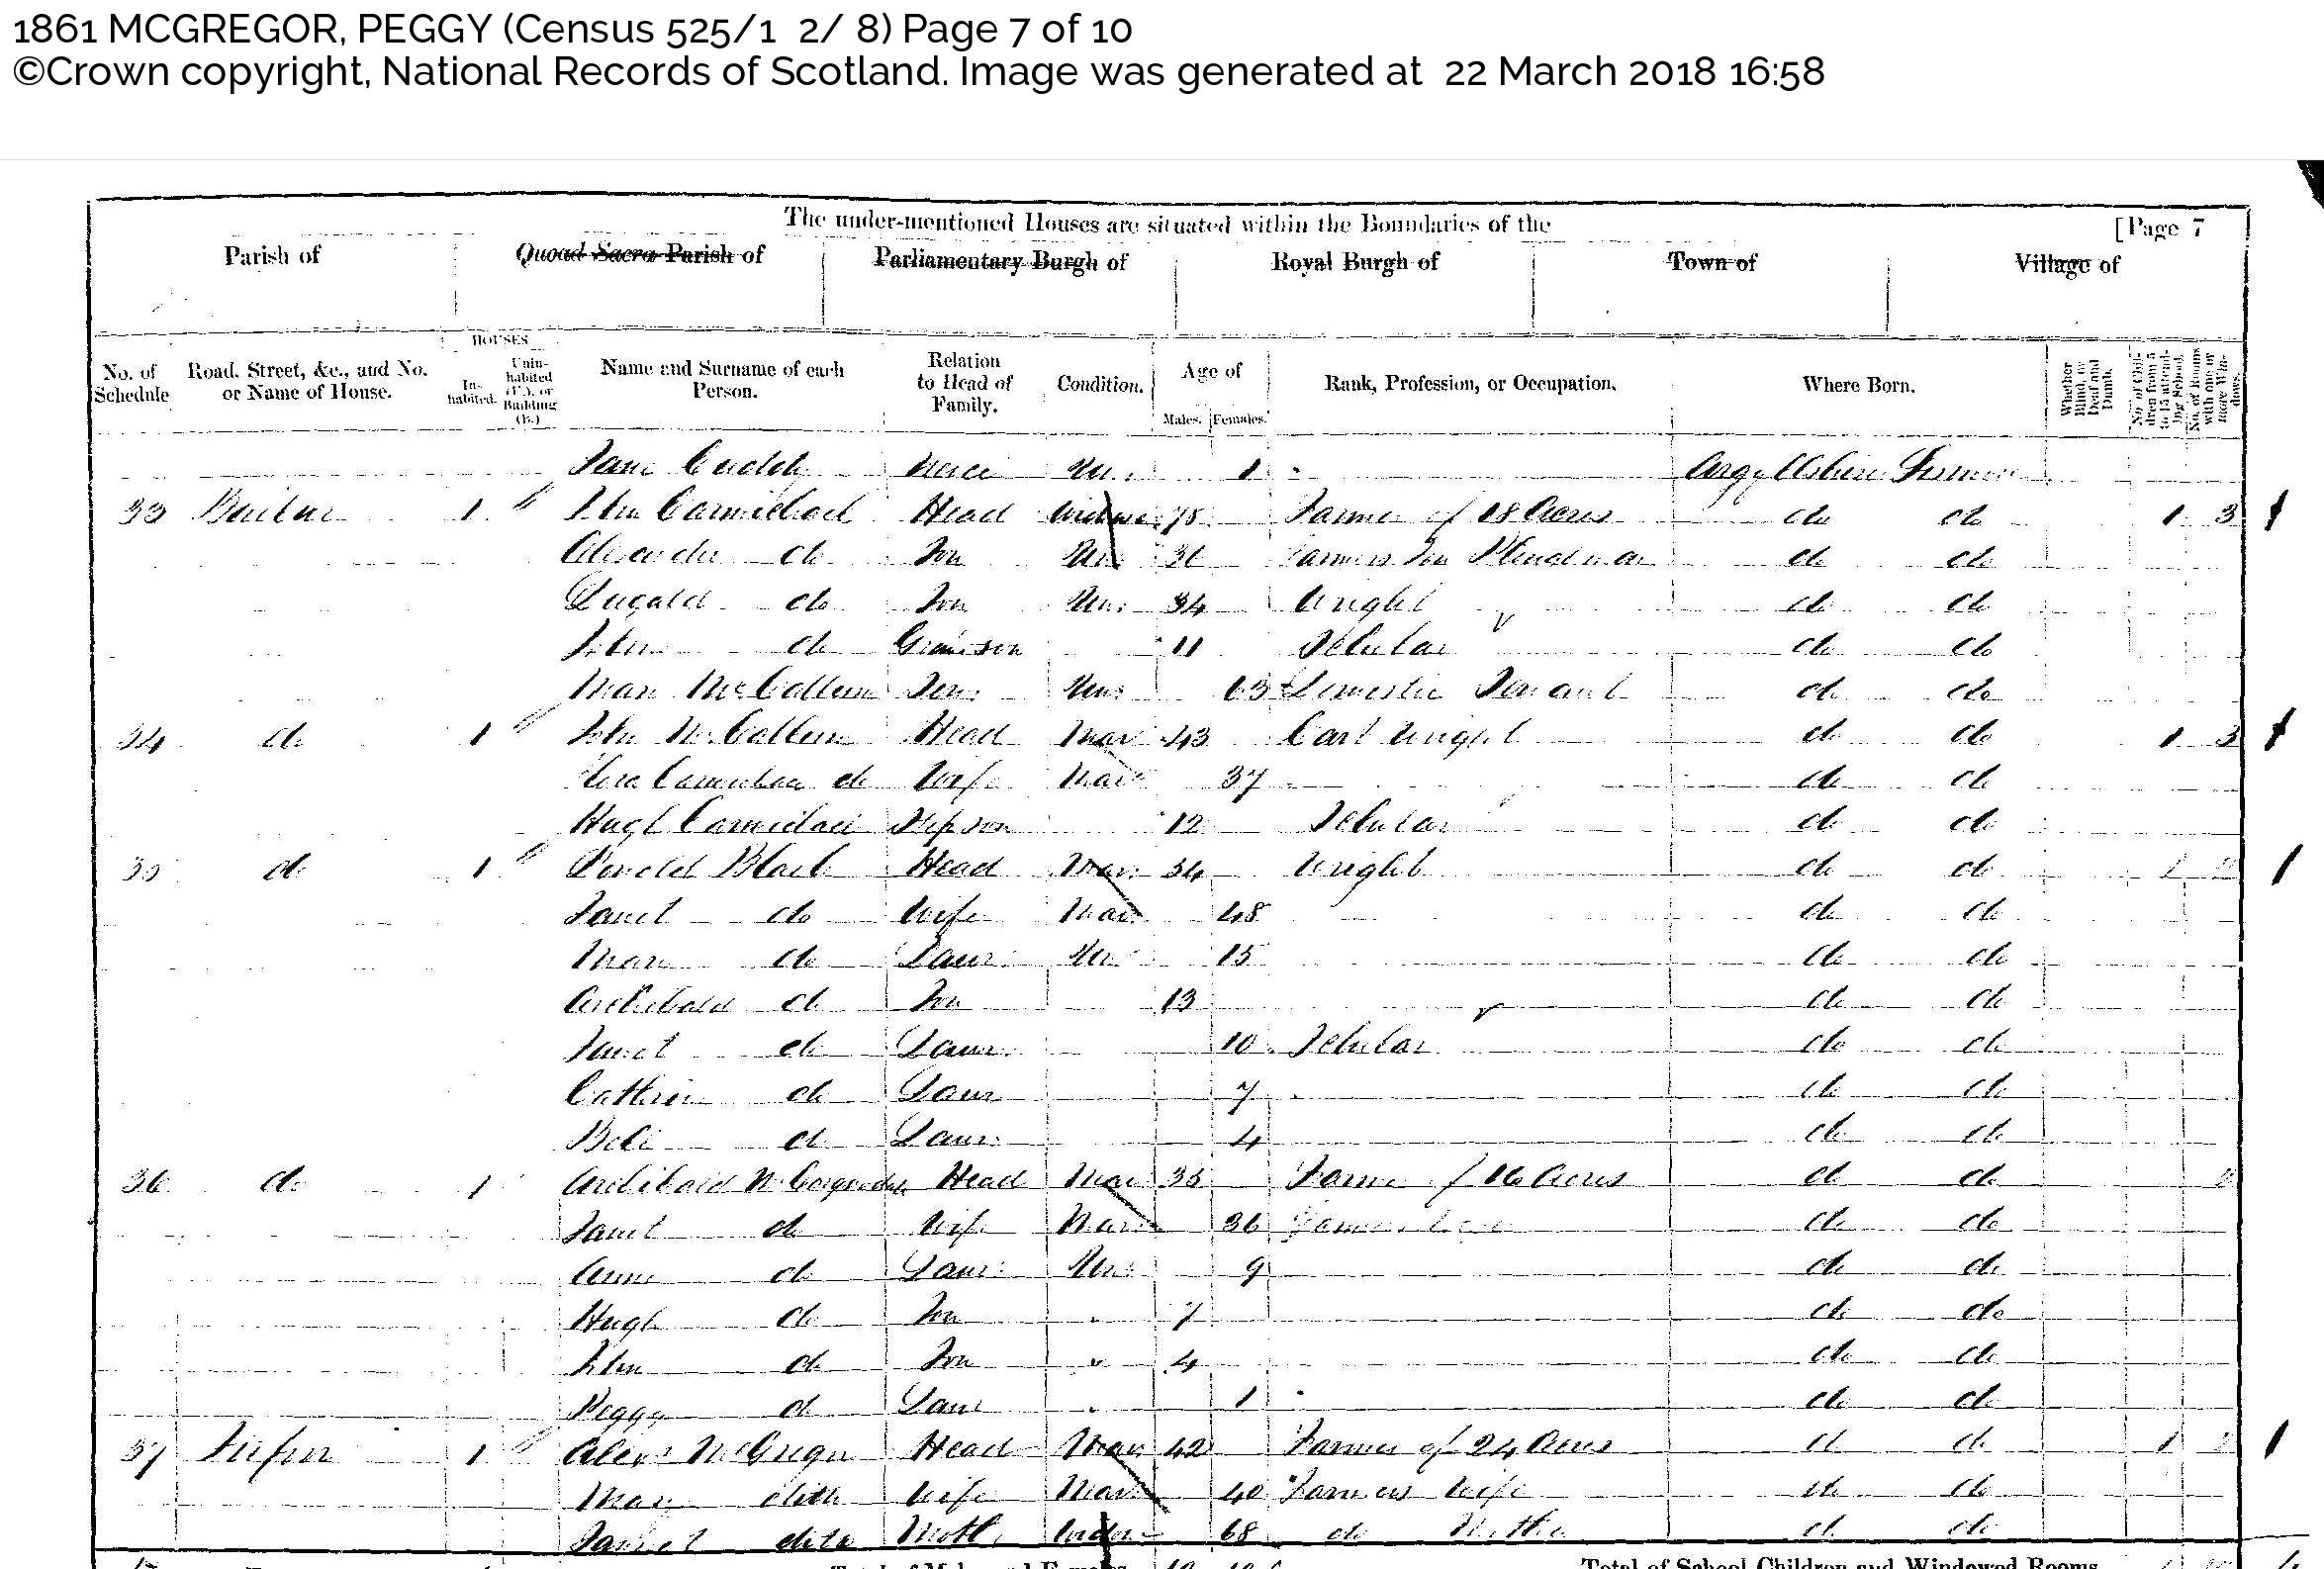 1861 MCGREGOR, PEGGY (Census 525/1 2/ 8) Page 7 of 10
©Crown copyright, National Records of Scotland. Image was generated at 22 March 2018 16:58
The under-mentioned Houses are situated within the Boundaries of the [Page 7
Parish of Quoad Sacra Parish of Parliamentary Burgh of Royal Burgh of Town of Village of
No. of Schedule Road, Street, &c., and No. or Name of House. HOUSES Inhabited. Uninhabited (U.), or Building (B.) Name and Surname of each Person. Relation to Head of Family. Condition. Age of Males. Females. Rank, Profession, or Occupation. Where Born. Whether Blind, or Deaf and Dumb. No. of Children from 5 to 15 attending School. No. of Rooms with one or more Windows.
Jane Un. 1 Argyllshire
33 1 John Carmichael Head 78 Farmer of 18 Acres do do 1 3
Alexander do Son Un 36 Farmers Son Ploughman do do
Dugald do Son Un. 34 Wright do do
John do Grandson 11 Scholar do do
Mary McCallum Ser. Un. 63 Domestic Servant do do
34 do 1 John McCallum Head Mar 43 Cart Wright do do 1 3
do Wife Mar 37 do do
Hugh Carmichael Stepson 12 Scholar do do
35 do 1 Donald Black Head Mar. 34 Wright do do 1
Janet do Wife Mar. 48 do do
Mary do Daur. Un. 15 do do
Archibald do Son 13 do do
Janet do Daur. 10 Scholar do do
Cathrin do Daur 7 do do
do Daur. 4 do do
36 do 1 Archibald Head Mar 35 Farmer of 16 Acres do do
Janet do Wife Mar. 36 do do
Anne do Daur. Un. 9 do do
Hugh do Son " 7 do do
John do Son " 4 do do
Peggy do Daur " 1 do do
37 1 Alexr McGregor Head Mar 42 Farmer of 24 Acres do do 1
Mary ditto Wife Mar. 40 Farmers Wife do do
Janet ditto Moth. Widow 68 do Mother do do
Total of School Children and Windowed Rooms